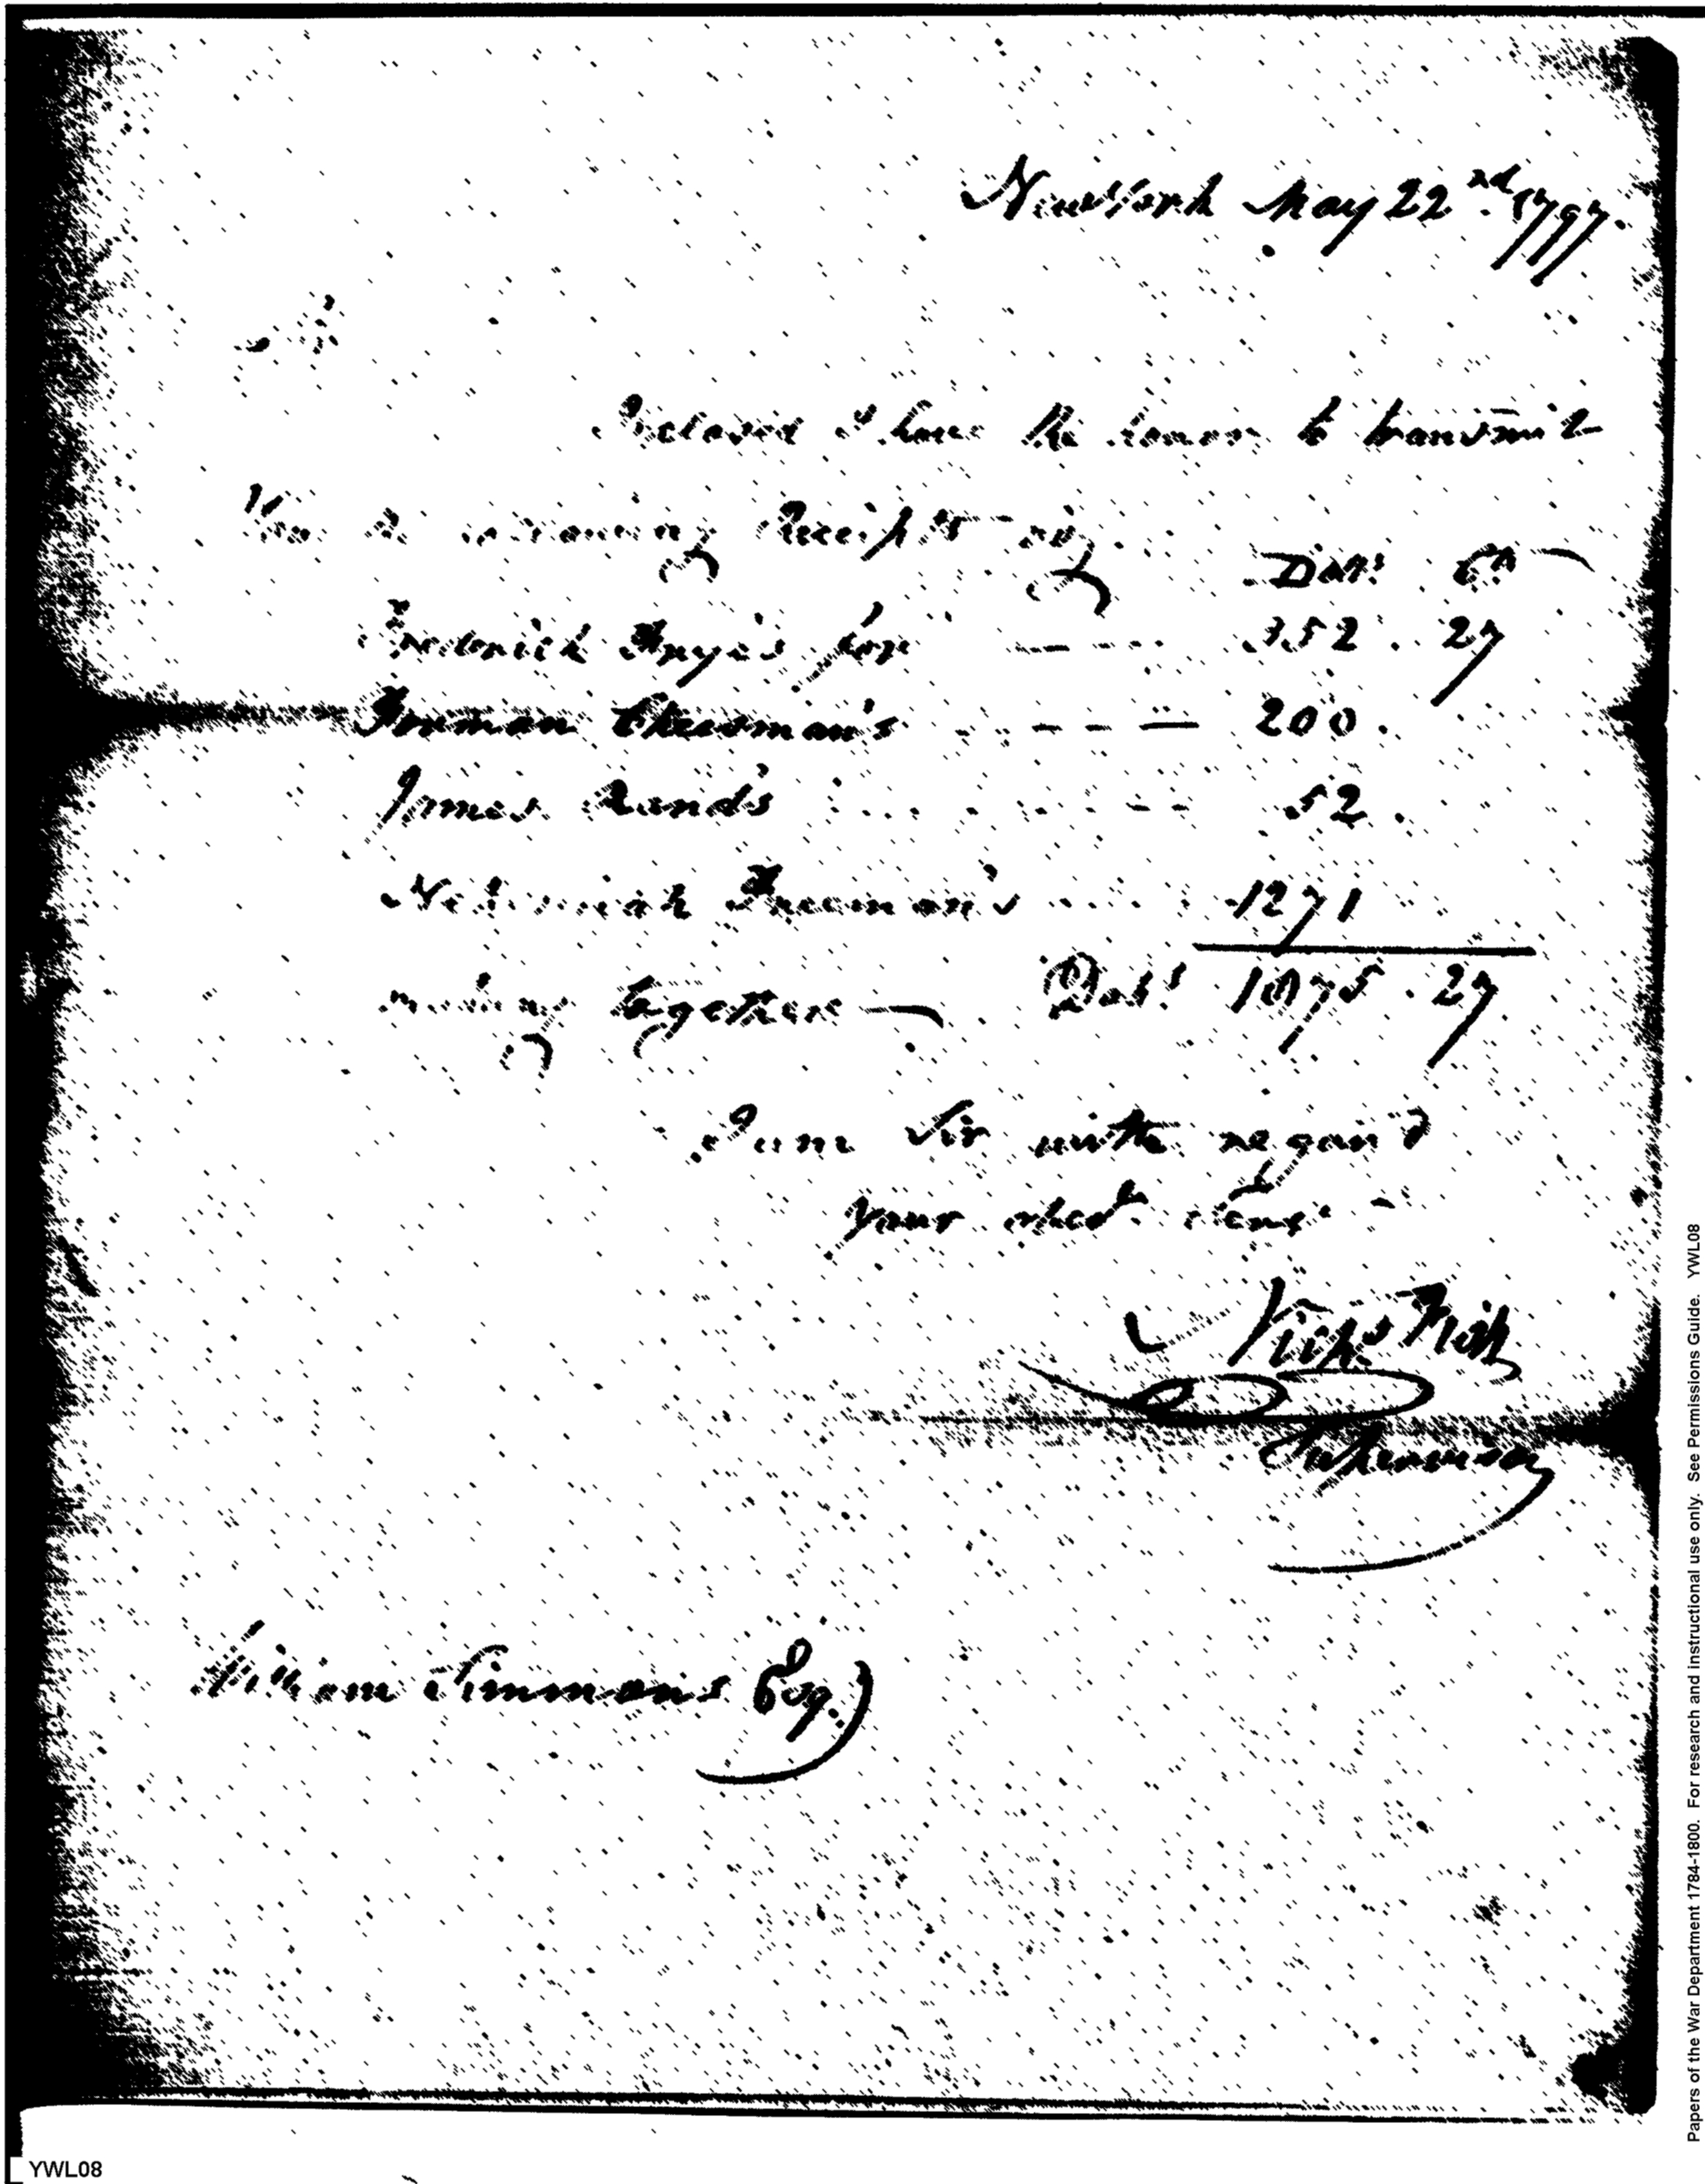 New York May 22nd 1797.
Sir
Inclosed I have the honor to transmit
You the following Receipts viz.
Dolls Cts
Frederick Frye's for ---- 352. 27
Freeman's ---- 200.
James Rand's ---- 52.
Nehemiah Freeman's 1271
making together — Dolls 1875. 27
I am Sir with regard
Your obed. Serv.
Nichs Fish
Supervisor
William Simmons Esq.
Papers of the War Department 1784-1800. For research and instructional use only. See Permissions Guide. YWL08
YWL08